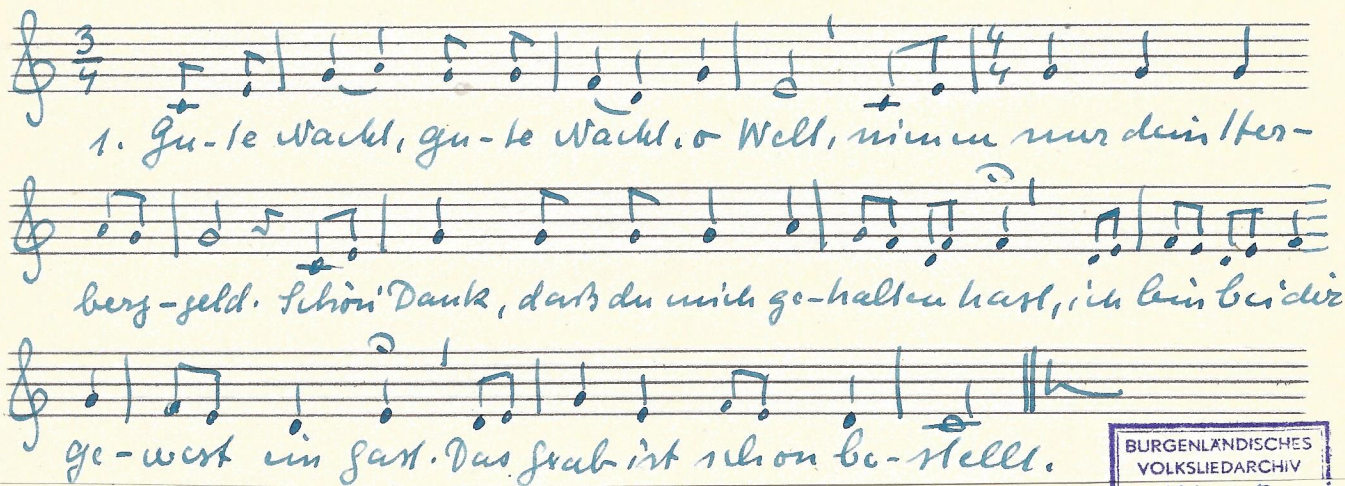 3/4
4/4
1. Gu-te Nacht, gu-te Nacht, o Welt, nimm nur dein Her-
berg-geld. Schön Dank, daß du mich ge-halten hast, ich bin bei dir
ge-west ein Gast. Das Grab ist schon be-stellt.
BURGENLÄNDISCHES
VOLKSLIEDARCHIV